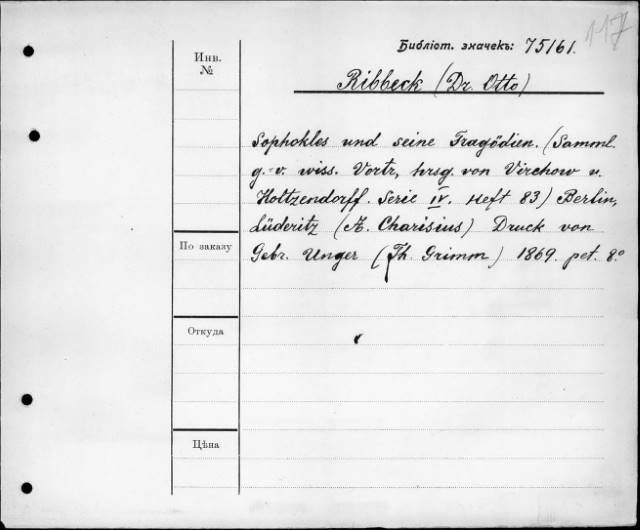 117
Библіот. значекъ: 75161.
Инв.
№
Ribbeck (Dr. Otto)
Sophokles und seine Tragödien. (Samml.
g. v. wiss. Vortr, hrsg. von Virchow u.
Holtzendorff. Serie IV. Heft 83) Berlin,
Lüderitz (A. Charisius) Druck von
По заказу
Gebr. Unger (Th. Grimm) 1869. pet. 8.º
Откуда
Цѣна